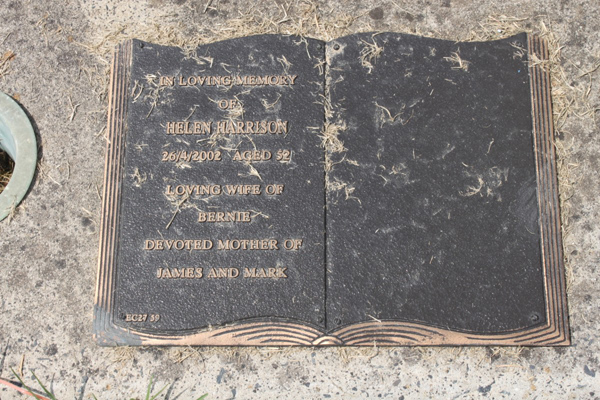 IN LOVING MEMORY
OF
HELEN HARRISON
26/4/2002 AGED 52
LOVING WIFE OF
BERNIE
DEVOTED MOTHER OF
JAMES AND MARK
EC27 59